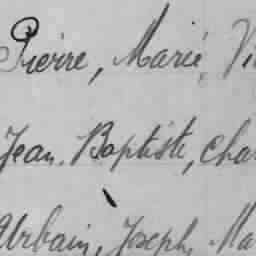 Pierre, Marie, Vi
Jean-Baptiste, Cha
Urbain, Joseph, Ma